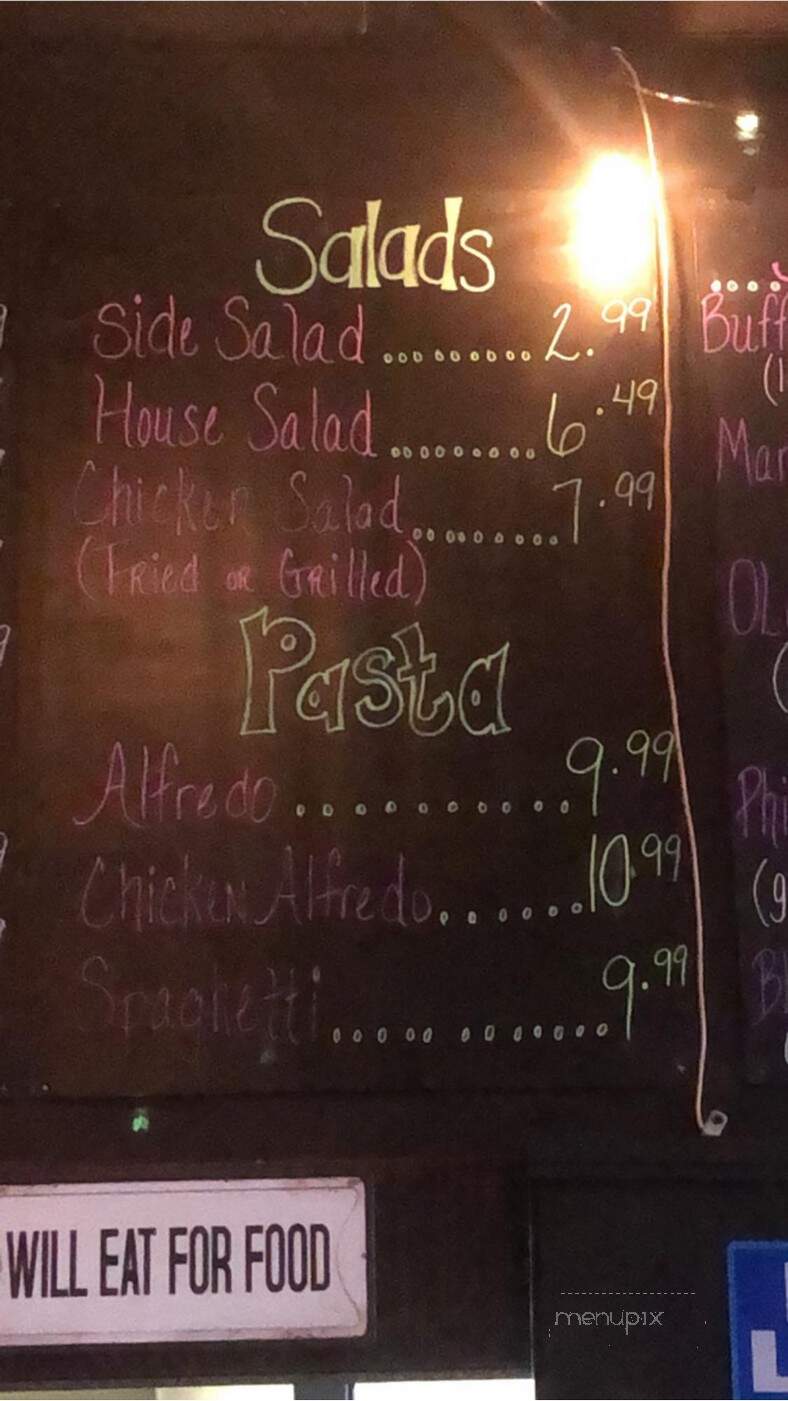 Salads
Side Salad ......... 2.99
House Salad ......... 6.49
Chicken Salad ......... 7.99
(Fried or Grilled)
Pasta
Alfredo .......... 9.99
Chicken Alfredo ...... 10.99
Spaghetti ............ 9.99
WILL EAT FOR FOOD
menupix